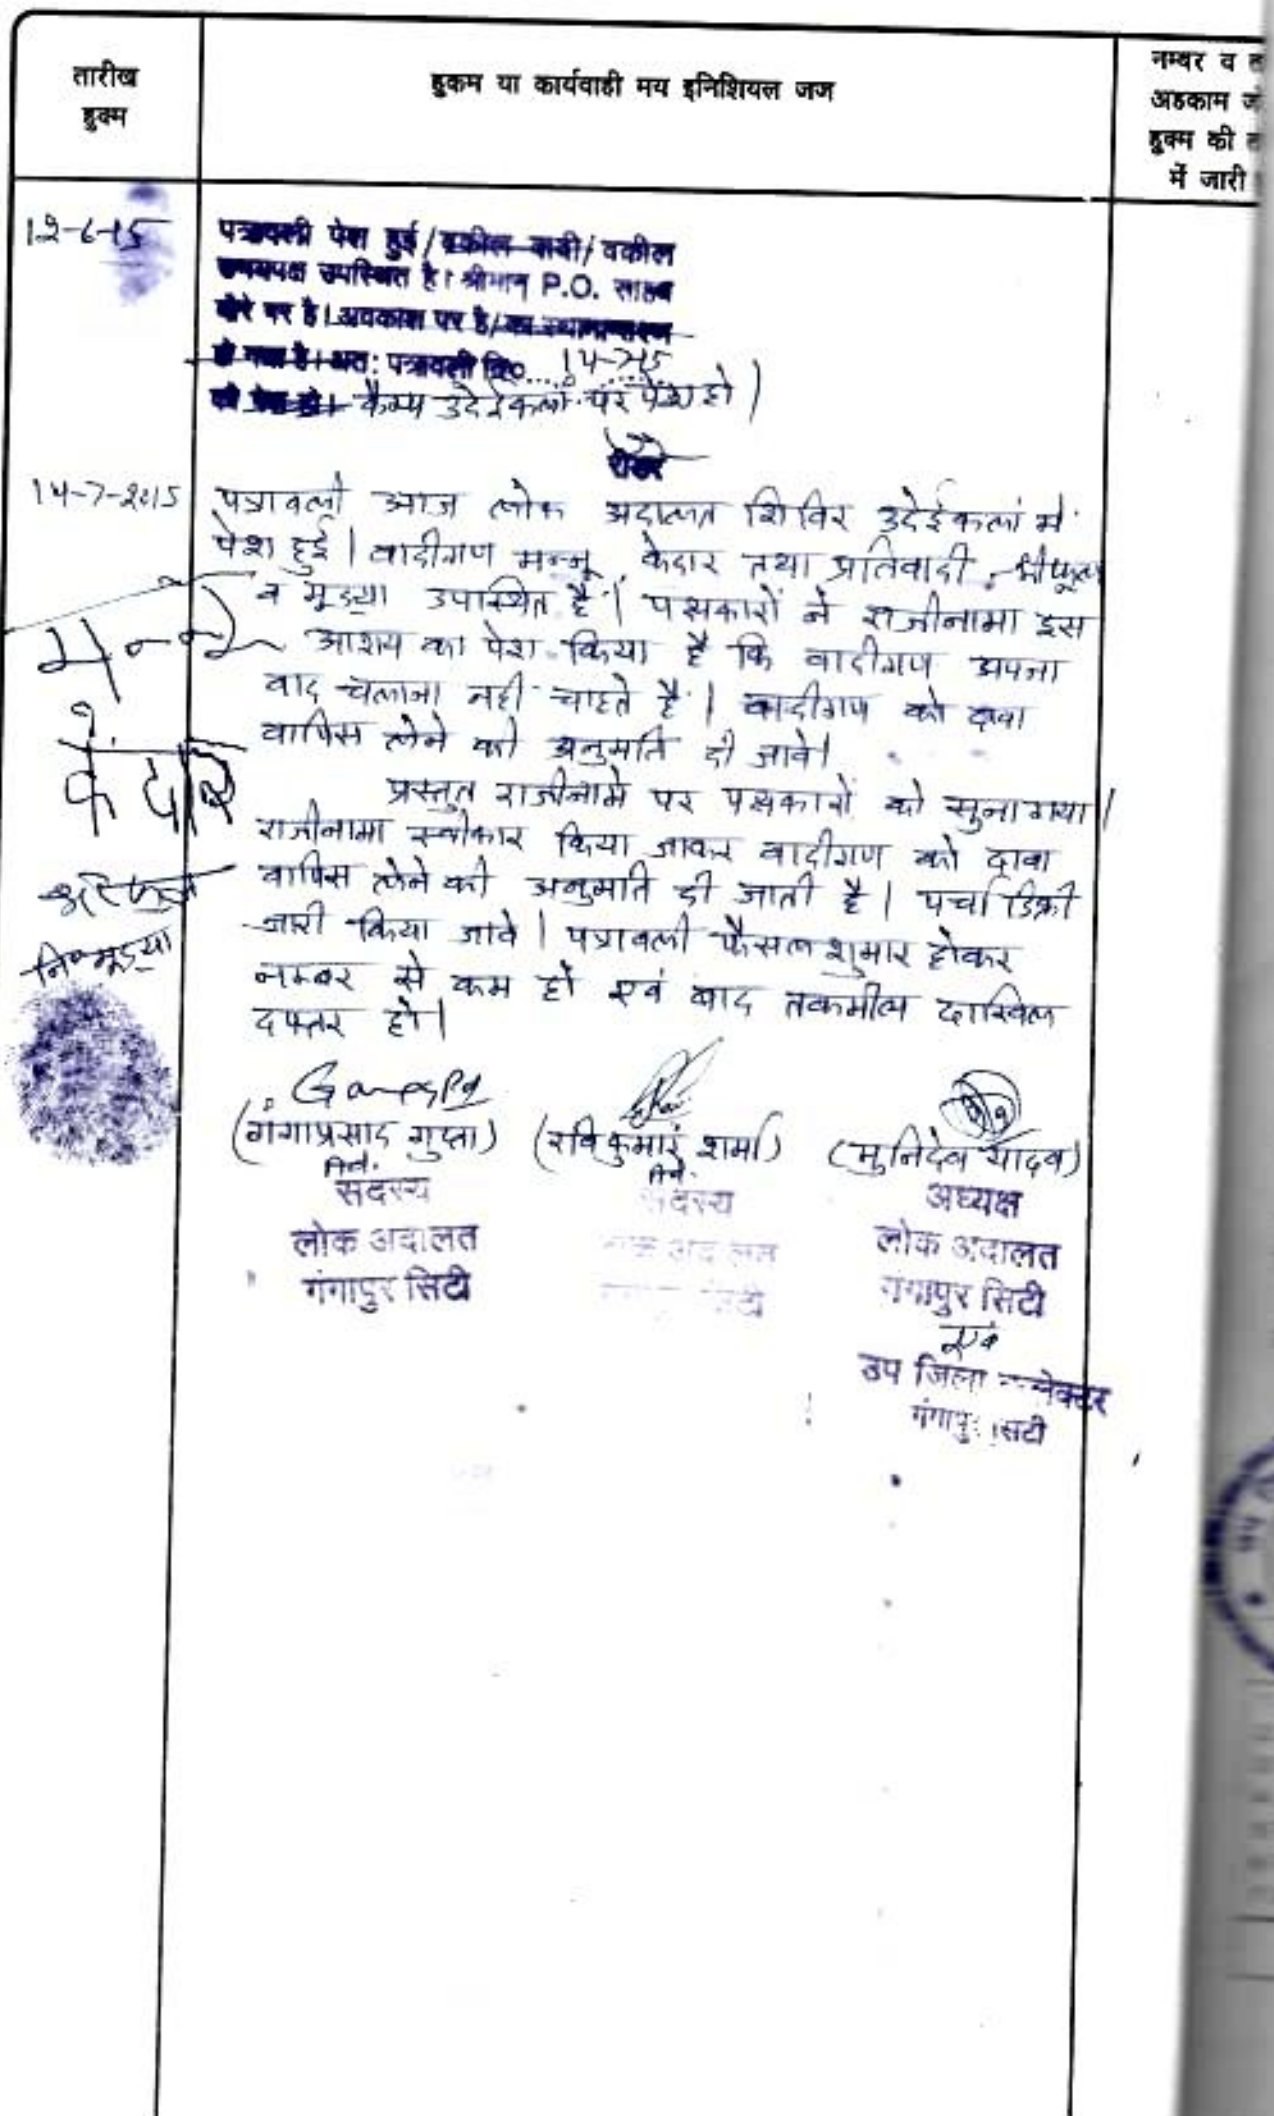 तारीख
हुक्म
हुकम या कार्यवाही मय इनिशियल जज
नम्बर व
अहकाम
हुक्म की
में जारी
12-6-15
पत्रावली पेश हुई/वकील वादी/वकील
उभयपक्ष उपस्थित है। श्रीमान् P.O. साहब
दौरे पर है।अवकाश पर है/का स्थानान्तरण
हो गया है। अत: पत्रावली दि०....14-7-15
को पेश हो। कैम्प उदेईकलां पर पेश हो।
रीडर
14-7-2015
पत्रावली आज लोक अदालत शिविर उदेईकलां में
पेश हुई। वादीगण मन्नू, केदार तथा प्रतिवादी
व मूड्या उपस्थित है। पक्षकारों ने राजीनामा इस
आशय का पेश किया है कि वादीगण अपना
वाद चलाना नही चाहते है। वादीगण को दावा
वापिस लेने की अनुमति दी जावे।
प्रस्तुत राजीनामे पर पक्षकारों को सुना गया।
राजीनामा स्वीकार किया जाकर वादीगण को दावा
वापिस लेने की अनुमति दी जाती है। पर्चा डिक्री
जारी किया जावे। पत्रावली फैसल शुमार होकर
नम्बर से कम हो एवं बाद तकमील दाखिल
दफ्तर हो।
मन्नू
केदार
नि० मूड्या
(गंगाप्रसाद गुप्ता)
सदस्य
लोक अदालत
गंगापुर सिटी
(रविकुमार शर्मा)
सदस्य
लोक अदालत
सिटी
(मुनिदेव यादव)
अध्यक्ष
लोक अदालत
गंगापुर सिटी
एवं
उप जिला कलेक्टर
गंगापुर सिटी